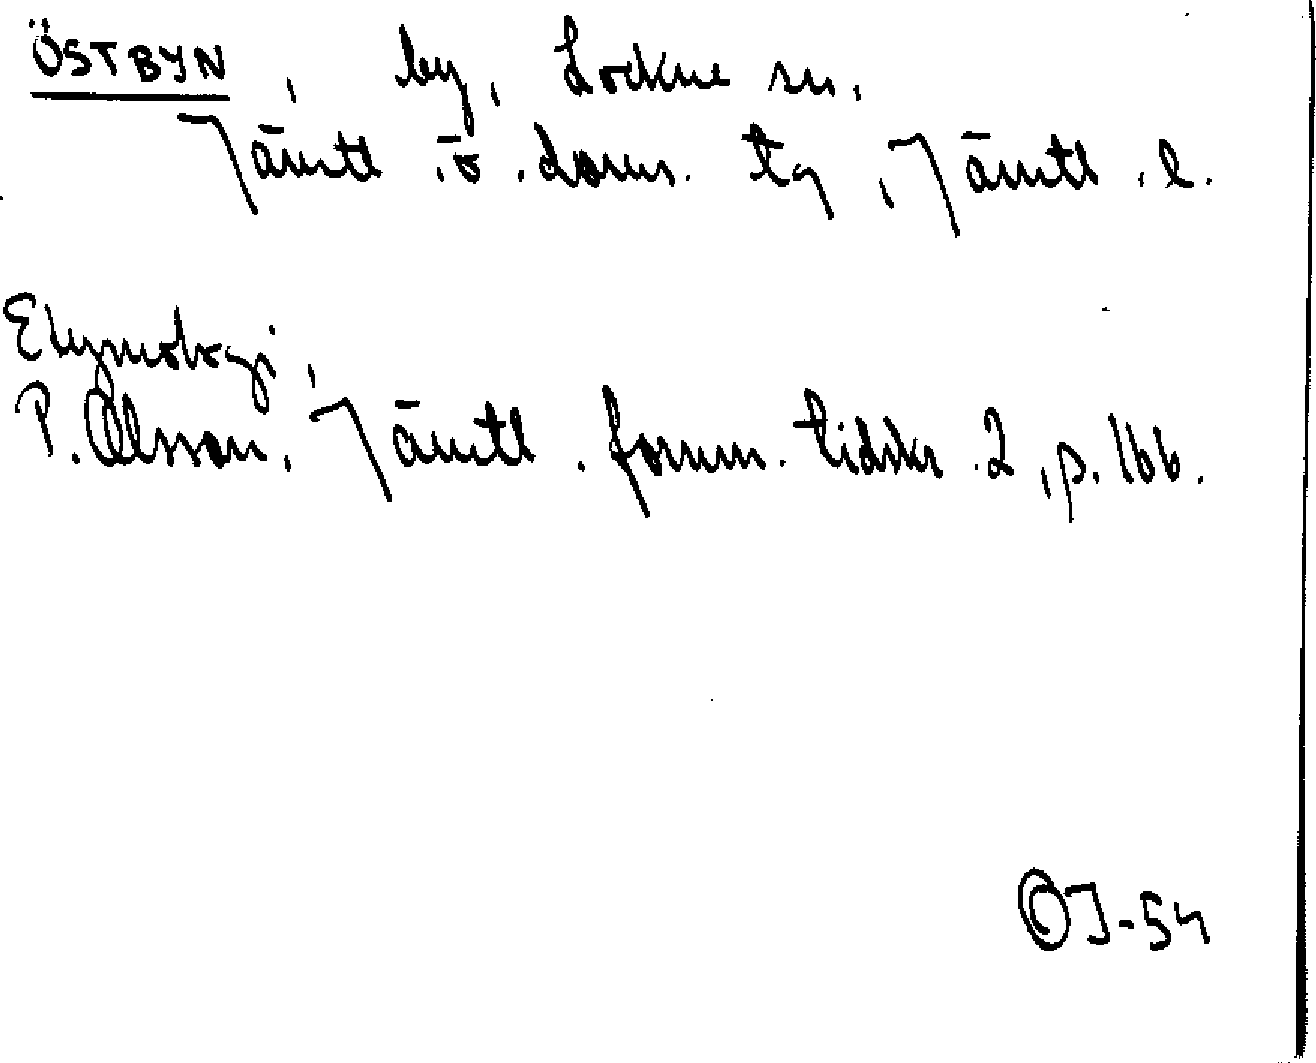 ÖSTBYN, by, Lockne sn.
Jämtl.ö.doms.tg, Jämtl.l.
Etymologi,
P. Olsson, Jämtl. fornm. tidskr. 2, p. 166.
OJ-54